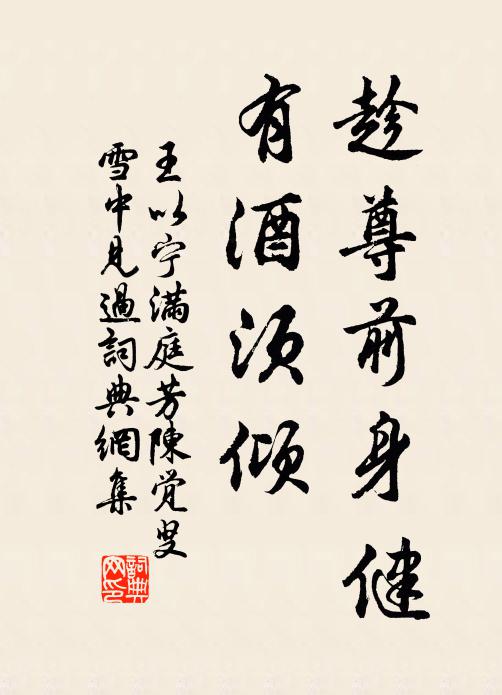 趁尊前身健
有酒须倾
王以宁满庭芳陳觉叟
雪中見過詞典網集
詞典网印